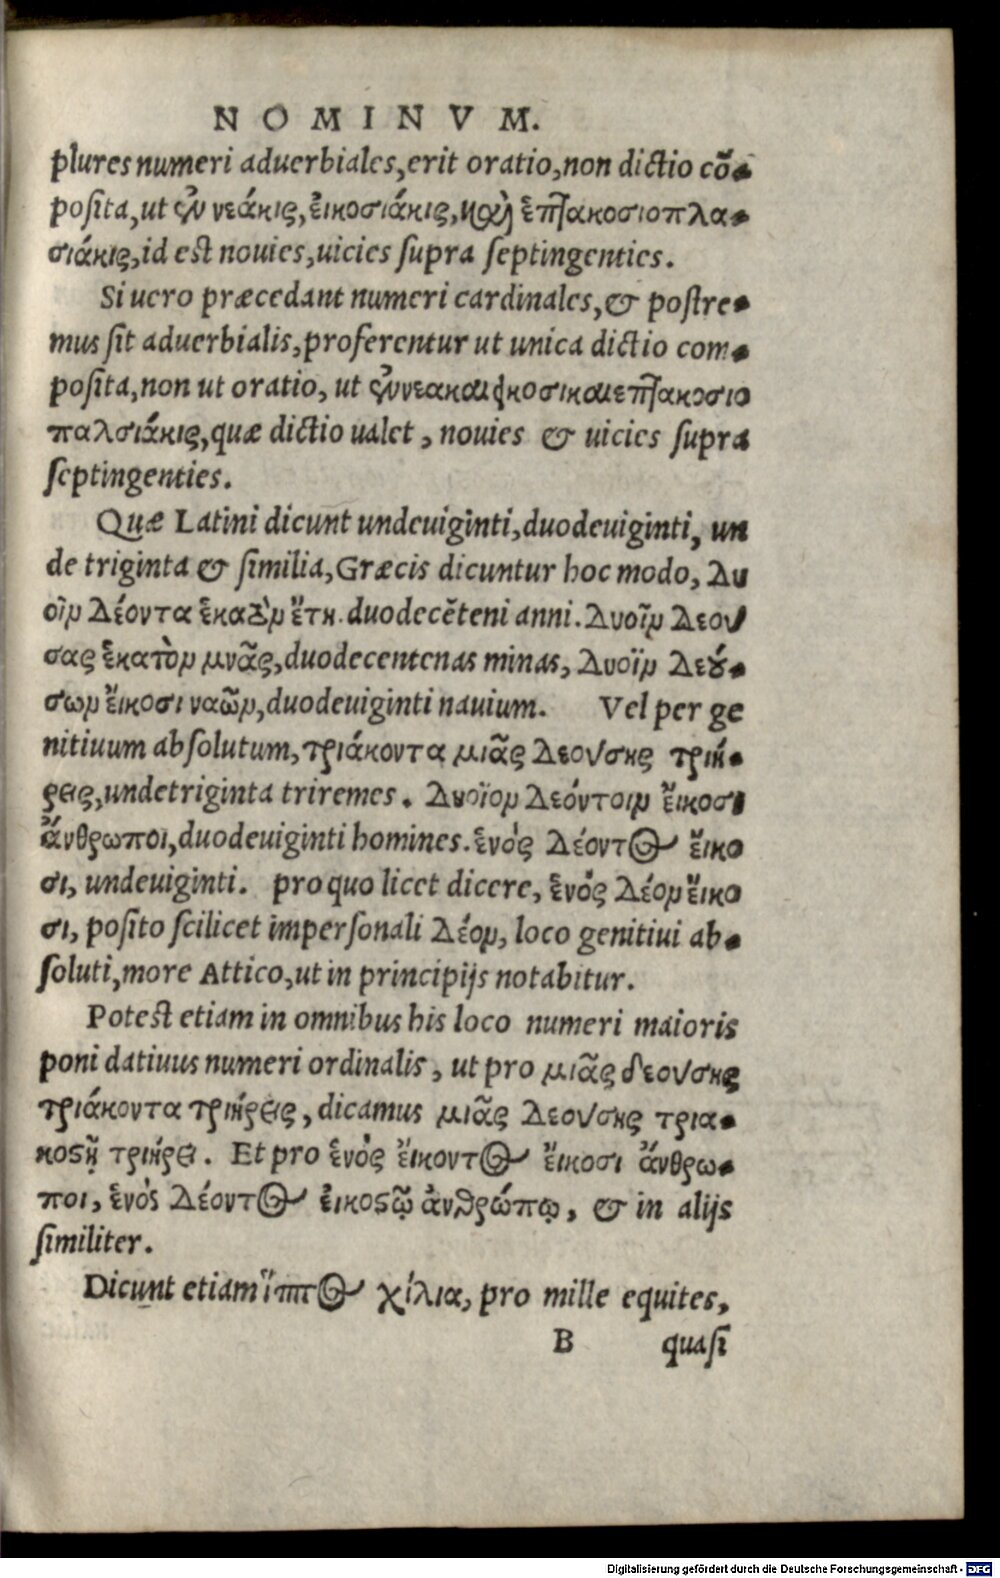 NOMINVM.
plures numeri aduerbiales, erit oratio, non dictio cõ-
posita, ut ἐννεάκις, ἐικοσιάκις, καὶ ἑπτακοσιοπλα-
σιάκις, id est nouies, uicies supra septingenties.
Si uero præcedant numeri cardinales, & postre-
mus sit aduerbialis, proferentur ut unica dictio com-
posita, non ut oratio, ut ἐννεακαιεικοσικαιεπτακοσιο
παλσιάκις, quæ dictio ualet, nouies & uicies supra
septingenties.
Quæ Latini dicunt undeuiginti, duodeuiginti, un
de triginta & similia, Græcis dicuntur hoc modo, Δυ
οῖν δέοντα ἑκατὸν ἔτη. duodecẽteni anni. Δυοῖν δεού
σας ἑκατὸν μνᾶς, duodecentenas minas, Δυοῖν δεού-
σων ἔικοσι ναῶν, duodeuiginti nauium. Vel per ge
nitiuum absolutum, τριάκοντα μιᾶς δεούσης τριή-
ρεις, undetriginta triremes. Δυοῖον δεόντοιν ἔικοσι
ἄνθρωποι, duodeuiginti homines. ἑνός δέοντος ἔικο
σι, undeuiginti. pro quo licet dicere, ἑνός δέον ἔικο
σι, posito scilicet impersonali δέον, loco genitiui ab-
soluti, more Attico, ut in principijs notabitur.
Potest etiam in omnibus his loco numeri maioris
poni datiuus numeri ordinalis, ut pro μιᾶς δεούσης
τριάκοντα τριήρεις, dicamus μιᾶς δεούσης τρια-
κοστῇ τριήρει. Et pro ἑνός ἔικοντος ἔικοσι ἄνθρω-
ποι, ἑνός δέοντος ἐικοστῷ ἀνθρώπῳ, & in alijs
similiter.
Dicunt etiam ἵππος χίλια, pro mille equites,
B quasi
Digitalisierung gefördert durch die Deutsche Forschungsgemeinschaft - DFG